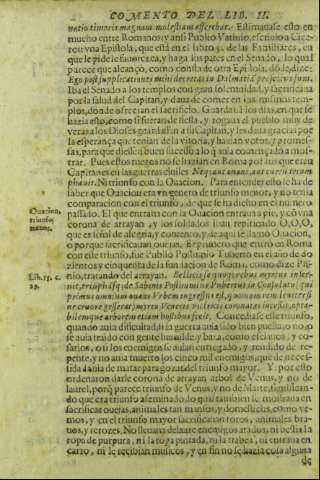 COMENTO DEL LIB. II.
natio timoris magnam molestiam asserebat. Estimauase esto en
mucho entre Romanos y assi Publio Vatinio, escriuio a Cice
ro vna Epistola, que està en el libro 5. de las Familiares, en
que le pide le fauorezca, y haga los pazes en el Senado, lo qual
parece que alcançò, como consta de otra Epistola, do le dize:
Ego post supplicationes mihi decretas in Dalmatiam profectus sum.
Iba el Senado a los templos con gran solennidad, y sacrificaua
por la salud del Capitan, y daua de comer en los mismos tem
plos, donde ofrecian el sacrificio. Guardauã los dias, en que se
hazia esto, como si fueran de fiesta, y rogaua el pueblo muy de
veras a los Dioses guardassen a su Capitan, y les daua gracias por
la esperança que tenian de la vitoria, y hazian votos, y promes-
sas, para que
trar. Pues estos ruegos no se hazian en Roma por los que eran
Capitanes en las guerras ciuiles
Ni triunfo con la Ouacion. Para entender esto se ha de
saber que Ouacion era vn genero de triunfo menor, y no tenia
comparacion con el triunfo, de que se ha dicho en el numero
passado. El que entraua con la Ouacion entraua a pie, y cõ vna
corona de arrayan, y los soldados iban repitiendo O,O,O,
que es señal de alegria, y contento, y de aqui se llamò Ouacion,
o porque sacrificauan ouejas. El primero que entrò en Roma
con este triunfo, fue Publio Postumio Tuberto en el año de do
zientos y cinquenta de la fundacion de Roma, como dize Pli-
nio, tratando del arrayan.
Ouacion,
triunfo
menor.
Lib. 15. c.
29.
primus omnium ouans Vrbem ingressus est, quoniam rem leniter si-
ne cruore gesserat) myrto Veneris victricis coronatus incessit, opta-
bilemque arborem etiam hostibus fecit. Concediase este triunfo,
quando auia dificultad, si la guerra auia sido bien puesta, o no, o
se auia traido con gente humilde y baxa, como esclauos, y co-
sarios, o si los enemigos se auian entregado, y rendido de re-
pente, y no auia muerto los cinco mil enemigos, que de neces-
sidad auia de matar para gozar del triunfo mayor. Y por esto
ordenaron darle corona de arrayan arbol de Venus, y no de
laurel, porq̃ parece triunfo de Venus, y no de Marte, significan-
do que era triunfo afeminado, lo qual tambien se mostraua en
sacrificar ouejas, animales tan mansos, y domesticos, como ve-
mos, y en el triunfo mayor sacrificauan toros, animales bra-
uos, y feroces. No lleuaua delante enemigos atados, ni vestia la
ropa de purpura, ni la toga pintada, ni la trabea, ni entraua en
carro, ni le recibian musicos, y en fin no se hazia cosa alguna
de